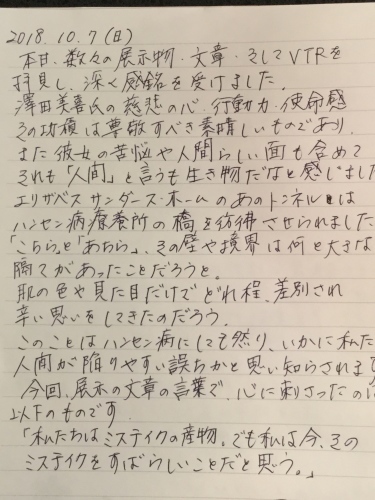 2018.10.7(日)
本日、数々の展示物・文章・そしてVTRを
拝見し、深く感銘を受けました。
澤田美喜氏の慈悲の心・行動力・使命感
その功績は尊敬すべき素晴しいものであり、
また彼女の苦悩や人間らしい面も含めて
それも「人間」と言うも生き物だなと感じました
エリザベスサンダース・ホームのあのトンネルは
ハンセン病療養所の橋を彷彿させられました
「こちら」と「あちら」、その壁や境界は何と大きな
隔てがあったことだろうと。
肌の色や見た目だけでどれ程、差別され
辛い思いをしてきたのだろう。
このことはハンセン病にしても然り、いかに私た
人間が陥りやすい誤ちかと思い知らされま
今回、展示の文章の言葉で、心に刺さったの
以下のものです
「私たちはミステイクの産物。でも私は今、その
ミステイクをすばらしいことだと思う。」